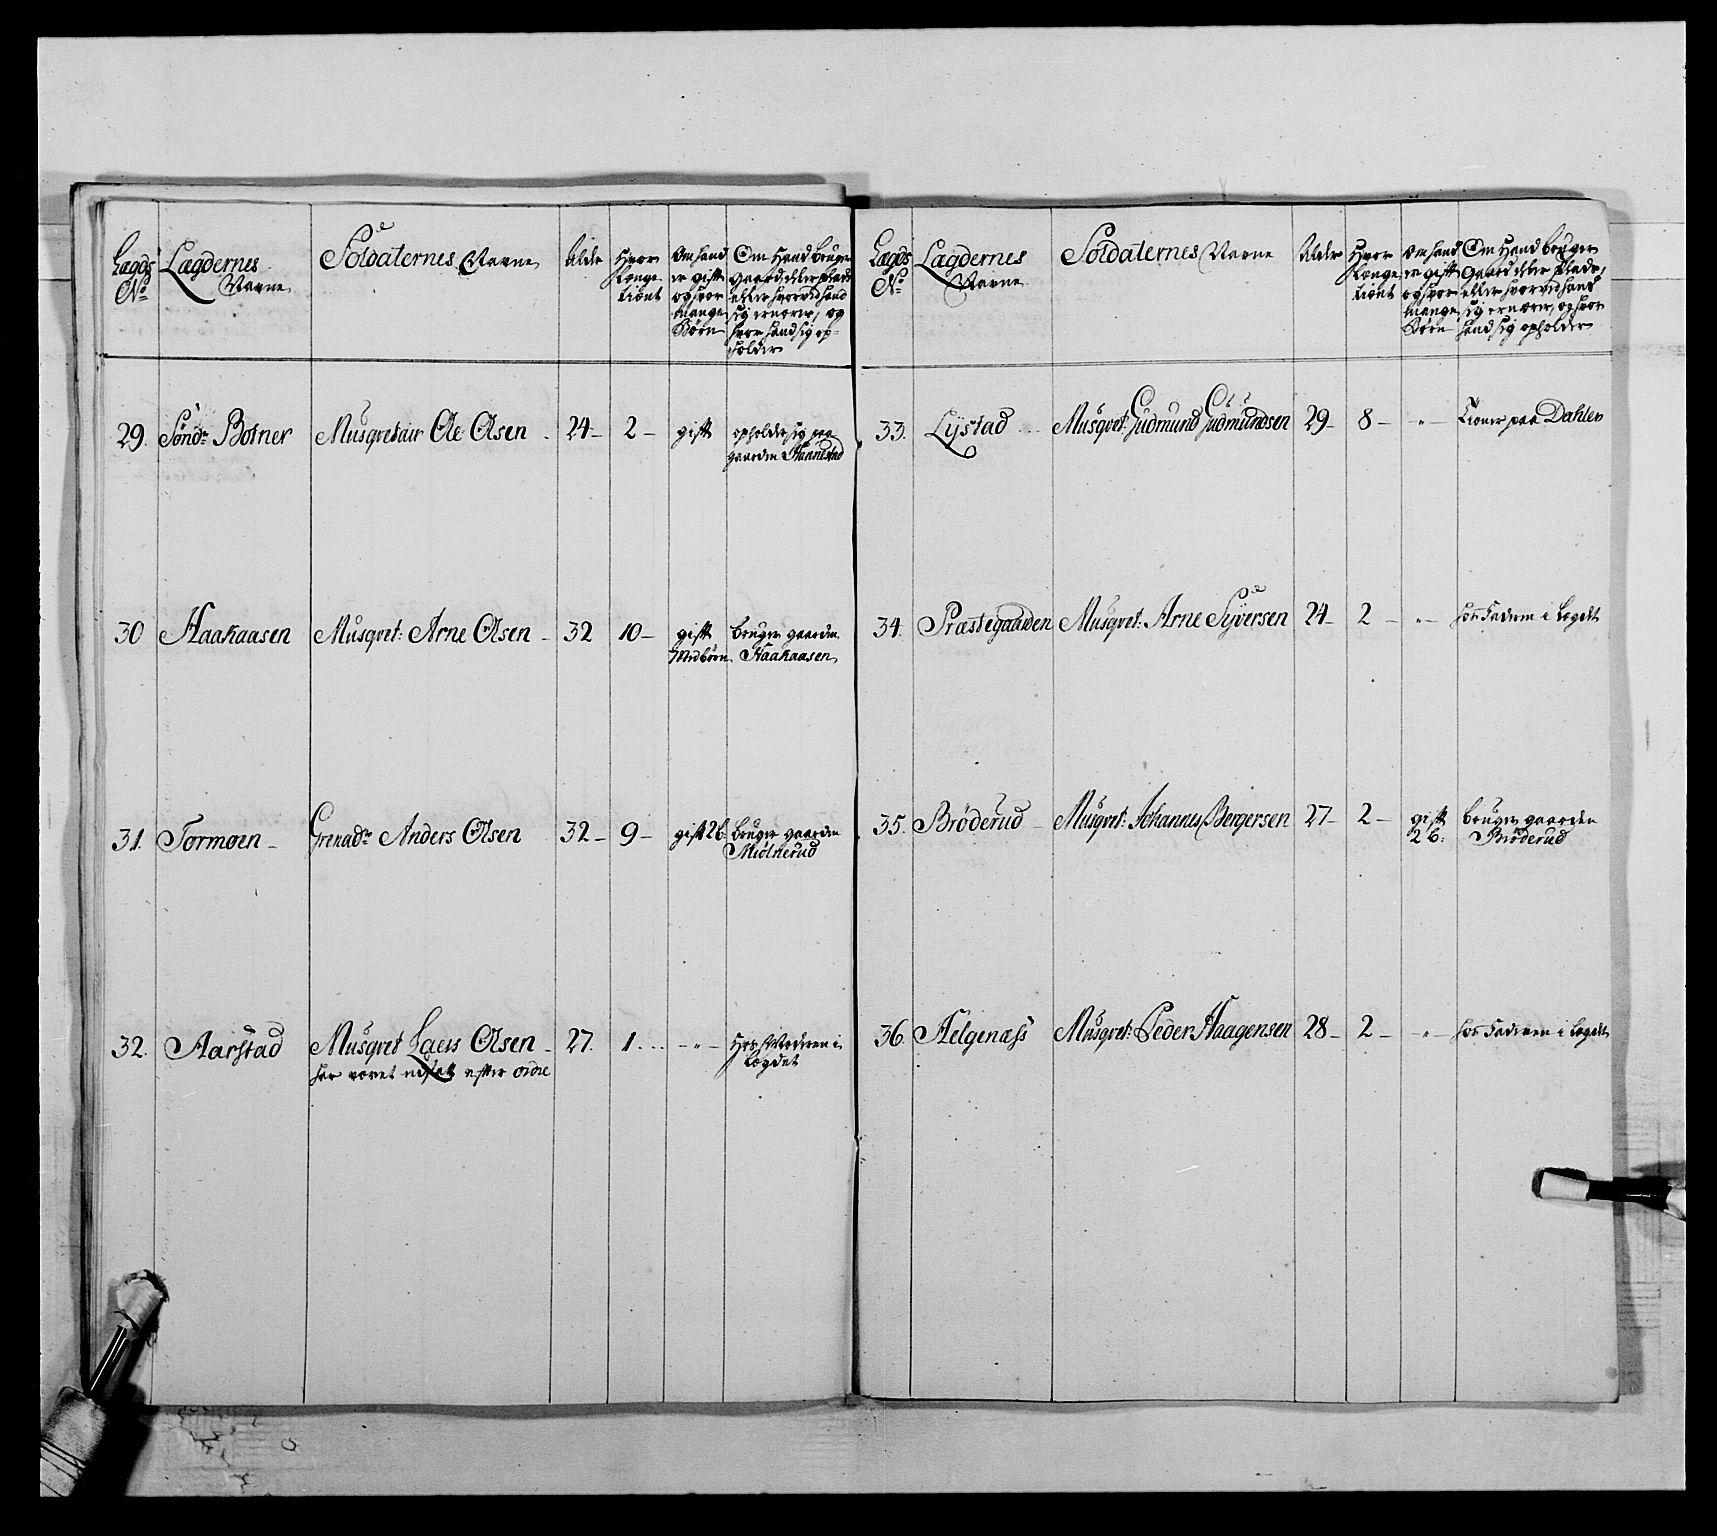 Lægds
No
Lægdernes
Navne
Soldaternes Navne
Alder
Hvor
længe
tient
Om hand
er gift
og hvor
mange
Børn
Om Hand bruger
gaard eller plads
eller hvorved hand
sig ernærer, og
hvor hand sig op-
holder
29. Sønd: Botner Musqvetair Ole Olsen 24 - 2 - gift opholder sig paa
gaarden
30 Haakaasen Musqvet: Arne Olsen - 32 10 - gift bruger gaarden
Haakaasen
31. Tormoen - Grenad: Anders Olsen 32 - 9 - gift 2 b: bruger gaarden
Miølnerud
32. Aarstad Musqvet Laers Olsen - 27. 1. - " - Hos Moderen i
Lægdet
har været efter ordre
Lægds
No
Lægdernes
Navne
Soldaternes Navne
Alder
Hvor
længe
tient
Om hand
er gift
og hvor
mange
Børn
Om Hand bruger
gaard eller Plads,
eller hvorved hand
sig ernærer, og hvor
hand sig opholder
33. Lystad Musqvet: Gudmund Gudmundsen 29 - 8 - " - tiener paa Dahler
34. Præstegaarden Musqvet: Arne Syversen 24 - 2 - " - hos Faderen i Lægdet
35. Brøderud Musqvet: Johannes Bergersen 27 - 2 - gift bruger gaarden
2 b: Brøderud
36. Helgenæss Musqvet: Peder Haagensen 28 - 2 - " - hos Faderen i Lægdet